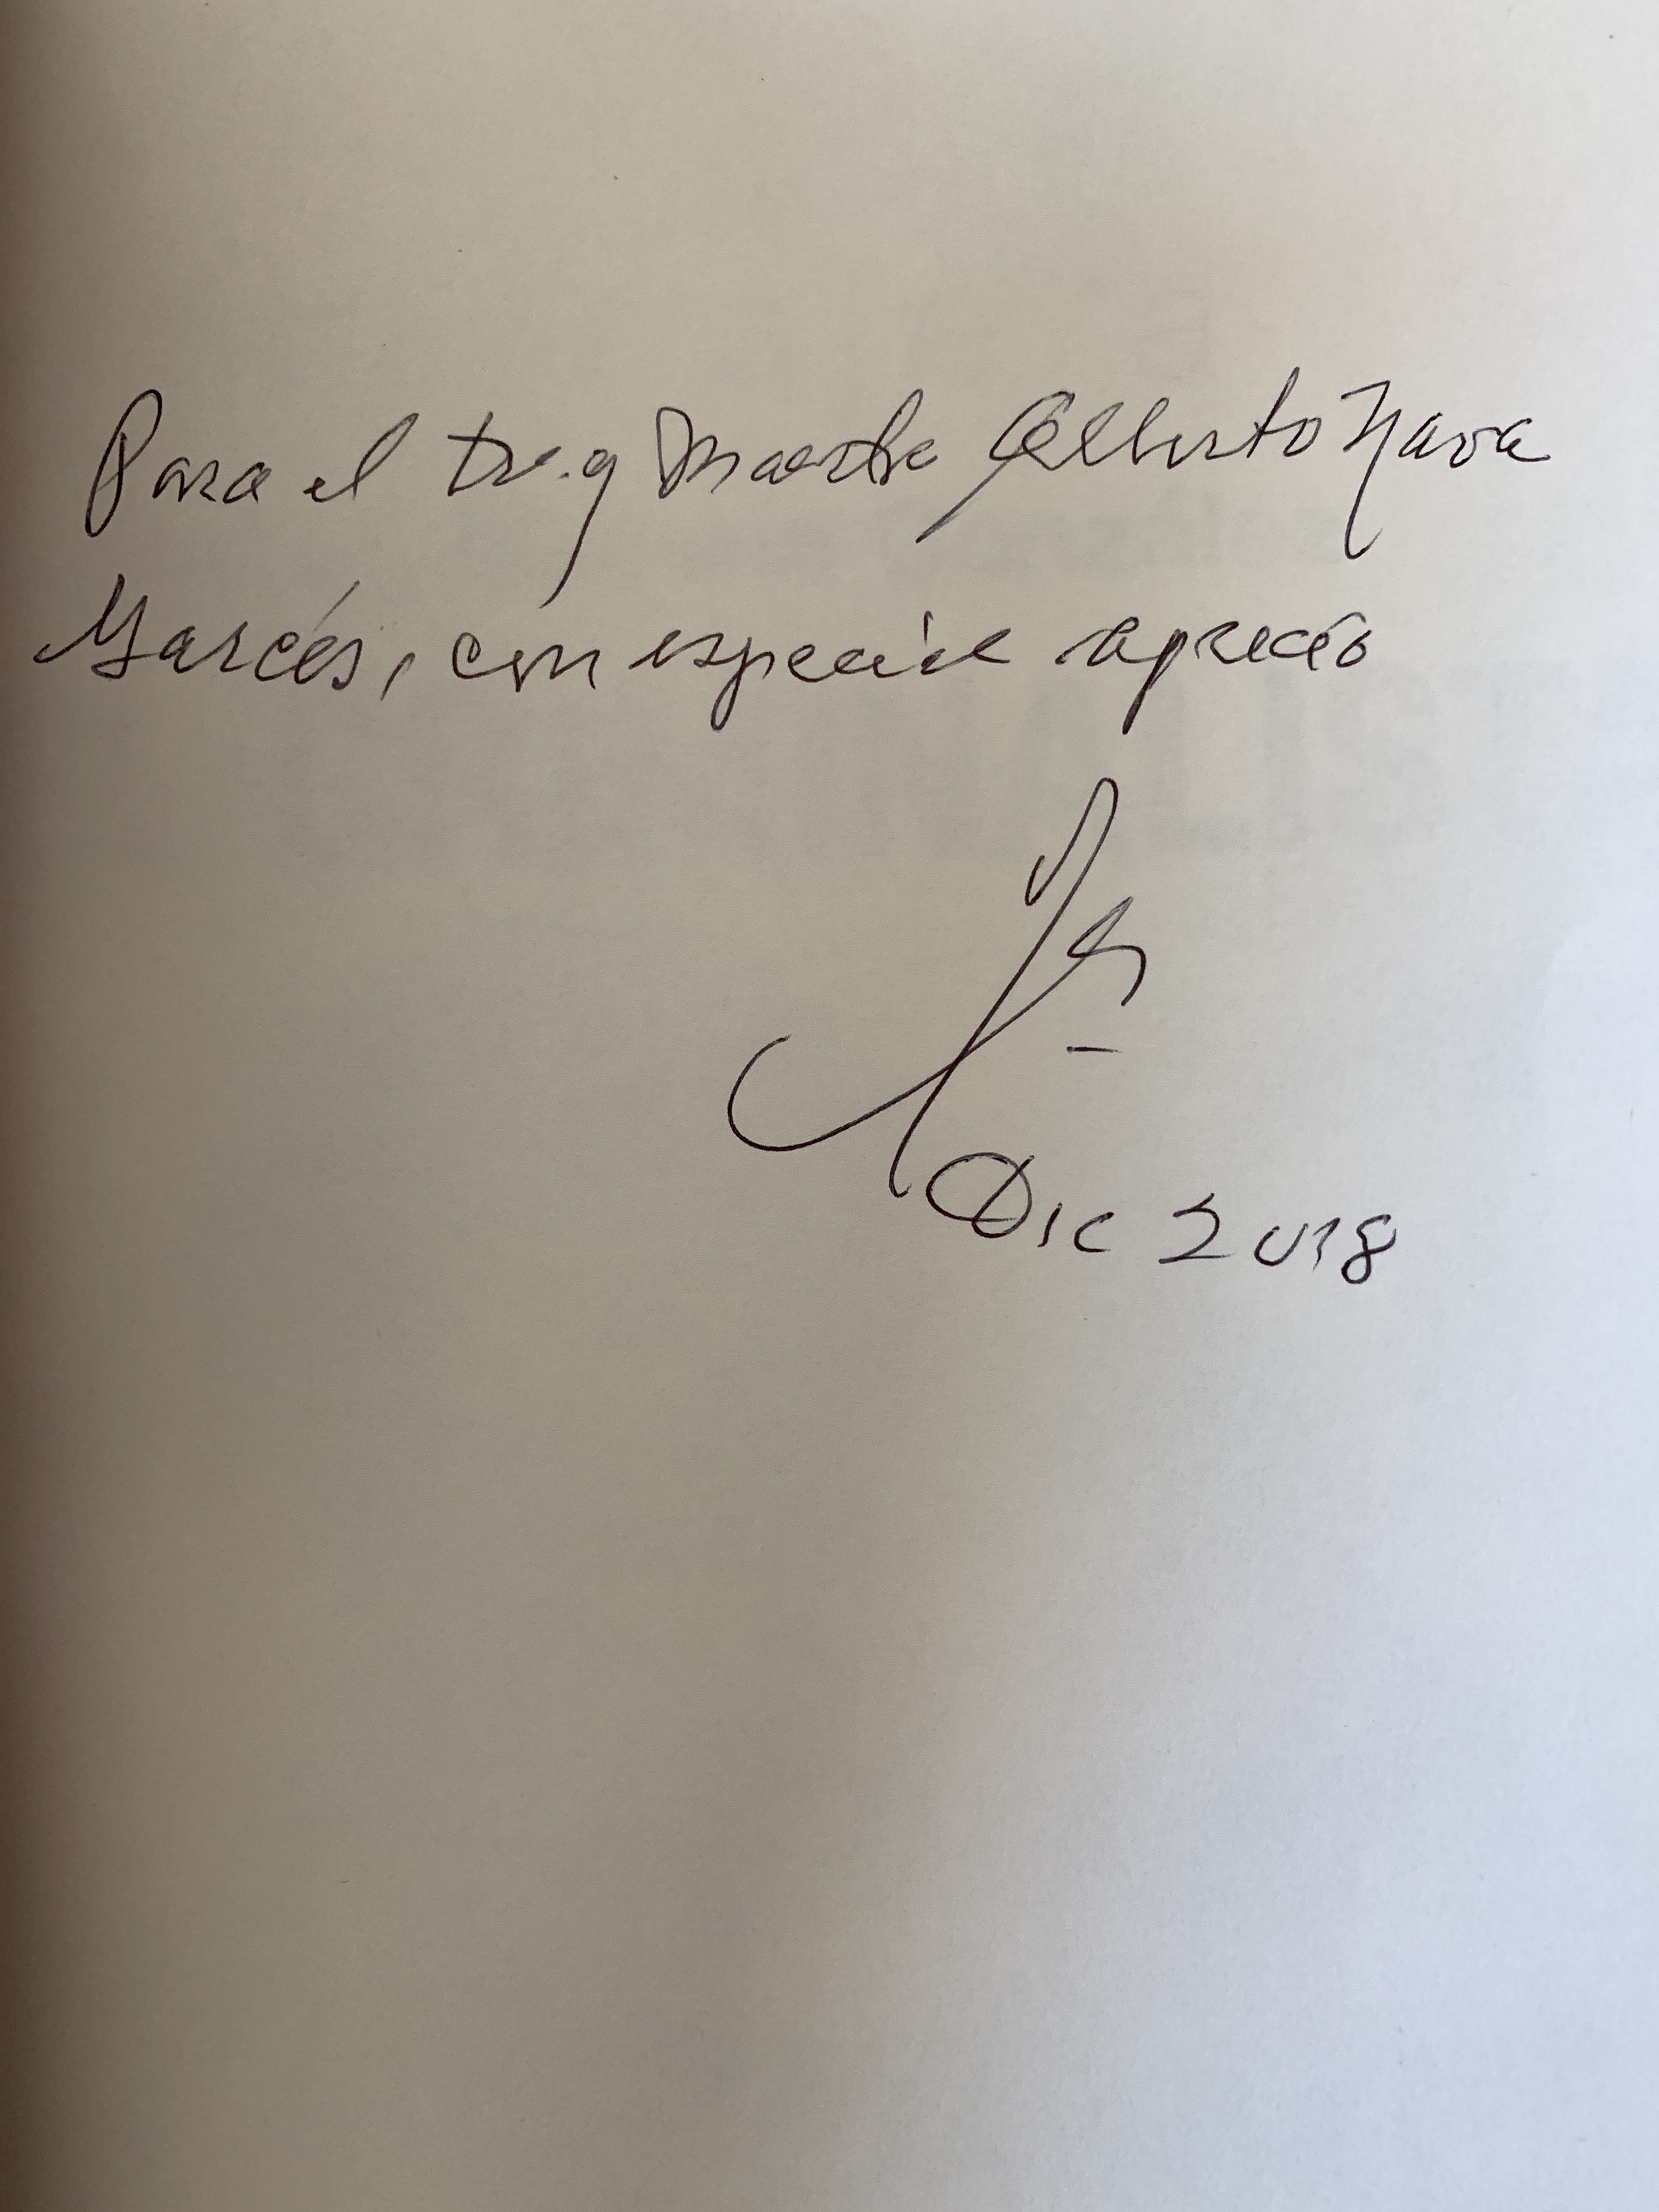 Para el Dr. y Maestro Alberto Nava
Garcés, con especial aprecio
Dic 2018